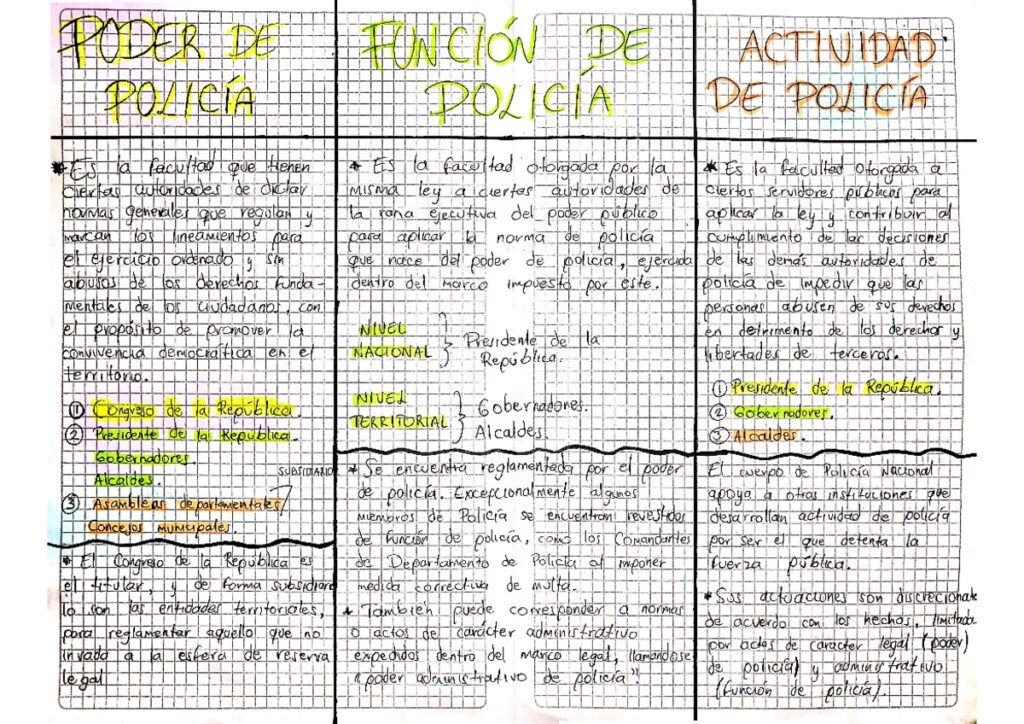 PODER DE
POLICÍA
* Es la facultad que tienen
ciertas autoridades de dictar
normas generales que regulan y
marcan los lineamientos para
el ejercicio ordenado y sin
abusos de los derechos funda-
mentales de los ciudadanos, con
el propósito de promover la
convivencia democrática en el
territorio.
① Congreso de la República.
② Presidente de la República.
Gobernadores.
Alcaldes.
SUBSIDIARIO
③ Asambleas departamentales
Concejos municipales
* El Congreso de la República es
el titular, y de forma subsidiaria
lo son las entidades territoriales,
para reglamentar aquello que no
invada a la esfera de reserva
legal
FUNCIÓN DE
POLICÍA
* Es la facultad otorgada por la
misma ley a ciertas autoridades de
la rama ejecutiva del poder público
para aplicar la norma de policía
que nace del poder de policía, ejercida
dentro del marco impuesto por este.
NIVEL
NACIONAL } Presidente de la
República.
NIVEL
TERRITORIAL } Gobernadores.
Alcaldes.
* Se encuentra reglamentada por el poder
de policía. Excepcionalmente algunos
miembros de Policía se encuentran revestidos
de función de policía, como los Comandantes
de Departamento de Policía al imponer
medida correctiva de multa.
* También puede corresponder a normas
o actos de carácter administrativo
expedidos dentro del marco legal, llamándose
"poder administrativo de policía".
ACTIVIDAD
DE POLICÍA
* Es la facultad otorgada a
ciertos servidores públicos para
aplicar la ley y contribuir al
cumplimiento de las decisiones
de las demás autoridades de
policía de impedir que las
personas abusen de sus derechos
en detrimento de los derechos y
libertades de terceros.
① Presidente de la República.
② Gobernadores.
③ Alcaldes.
El cuerpo de Policía Nacional
apoya a otras instituciones que
desarrollan actividad de policía
por ser el que detenta la
fuerza pública.
* Sus actuaciones son discrecionale
de acuerdo con los hechos, limitada
por actos de caracter legal (poder)
de policía) y administrativo
(función de policía).